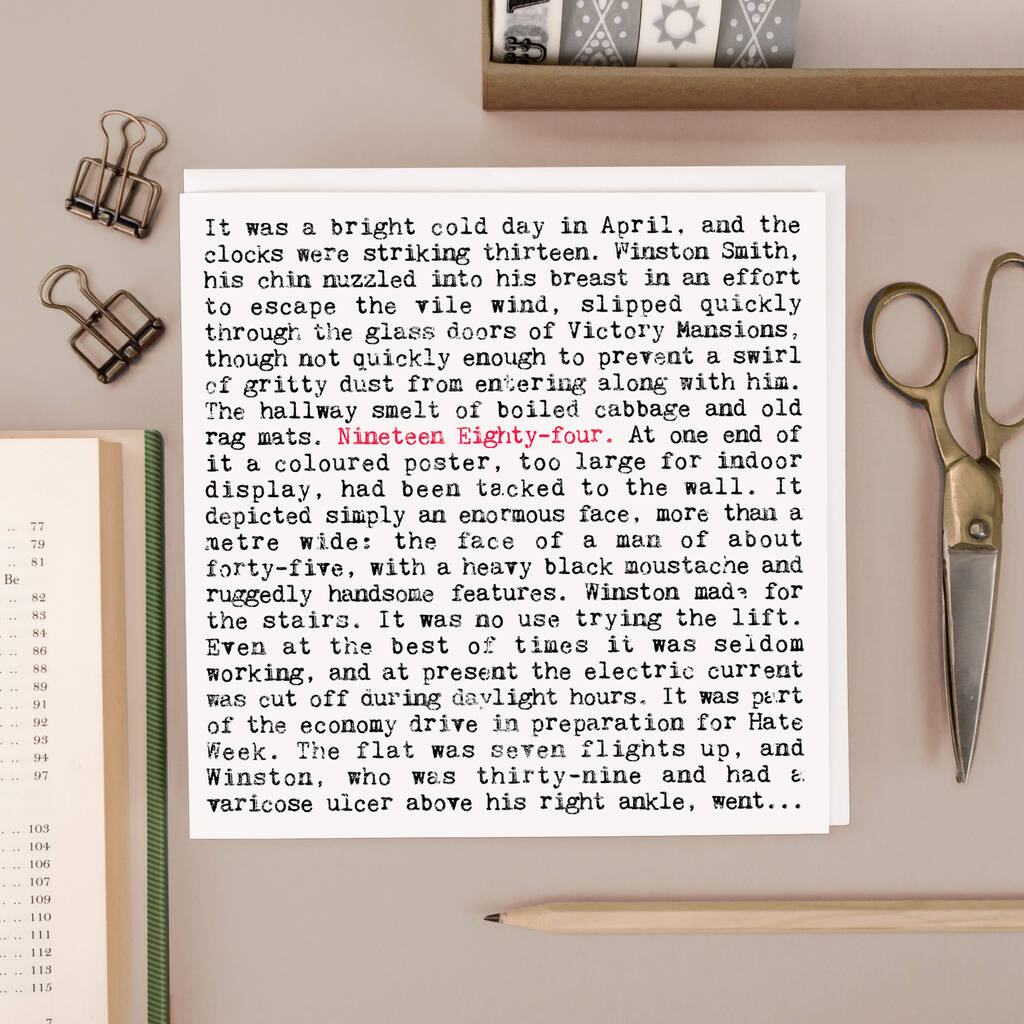 It was a bright cold day in April, and the
clocks were striking thirteen. Winston Smith,
his chin nuzzled into his breast in an effort
to escape the vile wind, slipped quickly
through the glass doors of Victory Mansions,
though not quickly enough to prevent a swirl
of gritty dust from entering along with him.
The hallway smelt of boiled cabbage and old
rag mats. Nineteen Eighty-four. At one end of
it a coloured poster, too large for indoor
display, had been tacked to the wall. It
depicted simply an enormous face, more than a
metre wide: the face of a man of about
forty-five, with a heavy black moustache and
ruggedly handsome features. Winston made for
the stairs. It was no use trying the lift.
Even at the best of times it was seldom
working, and at present the electric current
was cut off during daylight hours. It was part
of the economy drive in preparation for Hate
Week. The flat was seven flights up, and
Winston, who was thirty-nine and had a
varicose ulcer above his right ankle, went...
.. 77
.. 79
.. 81
Be
.. 82
.. 83
.. 84
.. 86
.. 88
.. 89
.. 91
.. 92
.. 93
.. 94
.. 97
.. 103
.. 104
.. 106
.. 107
.. 109
.. 110
.. 111
.. 112
.. 113
.. 115